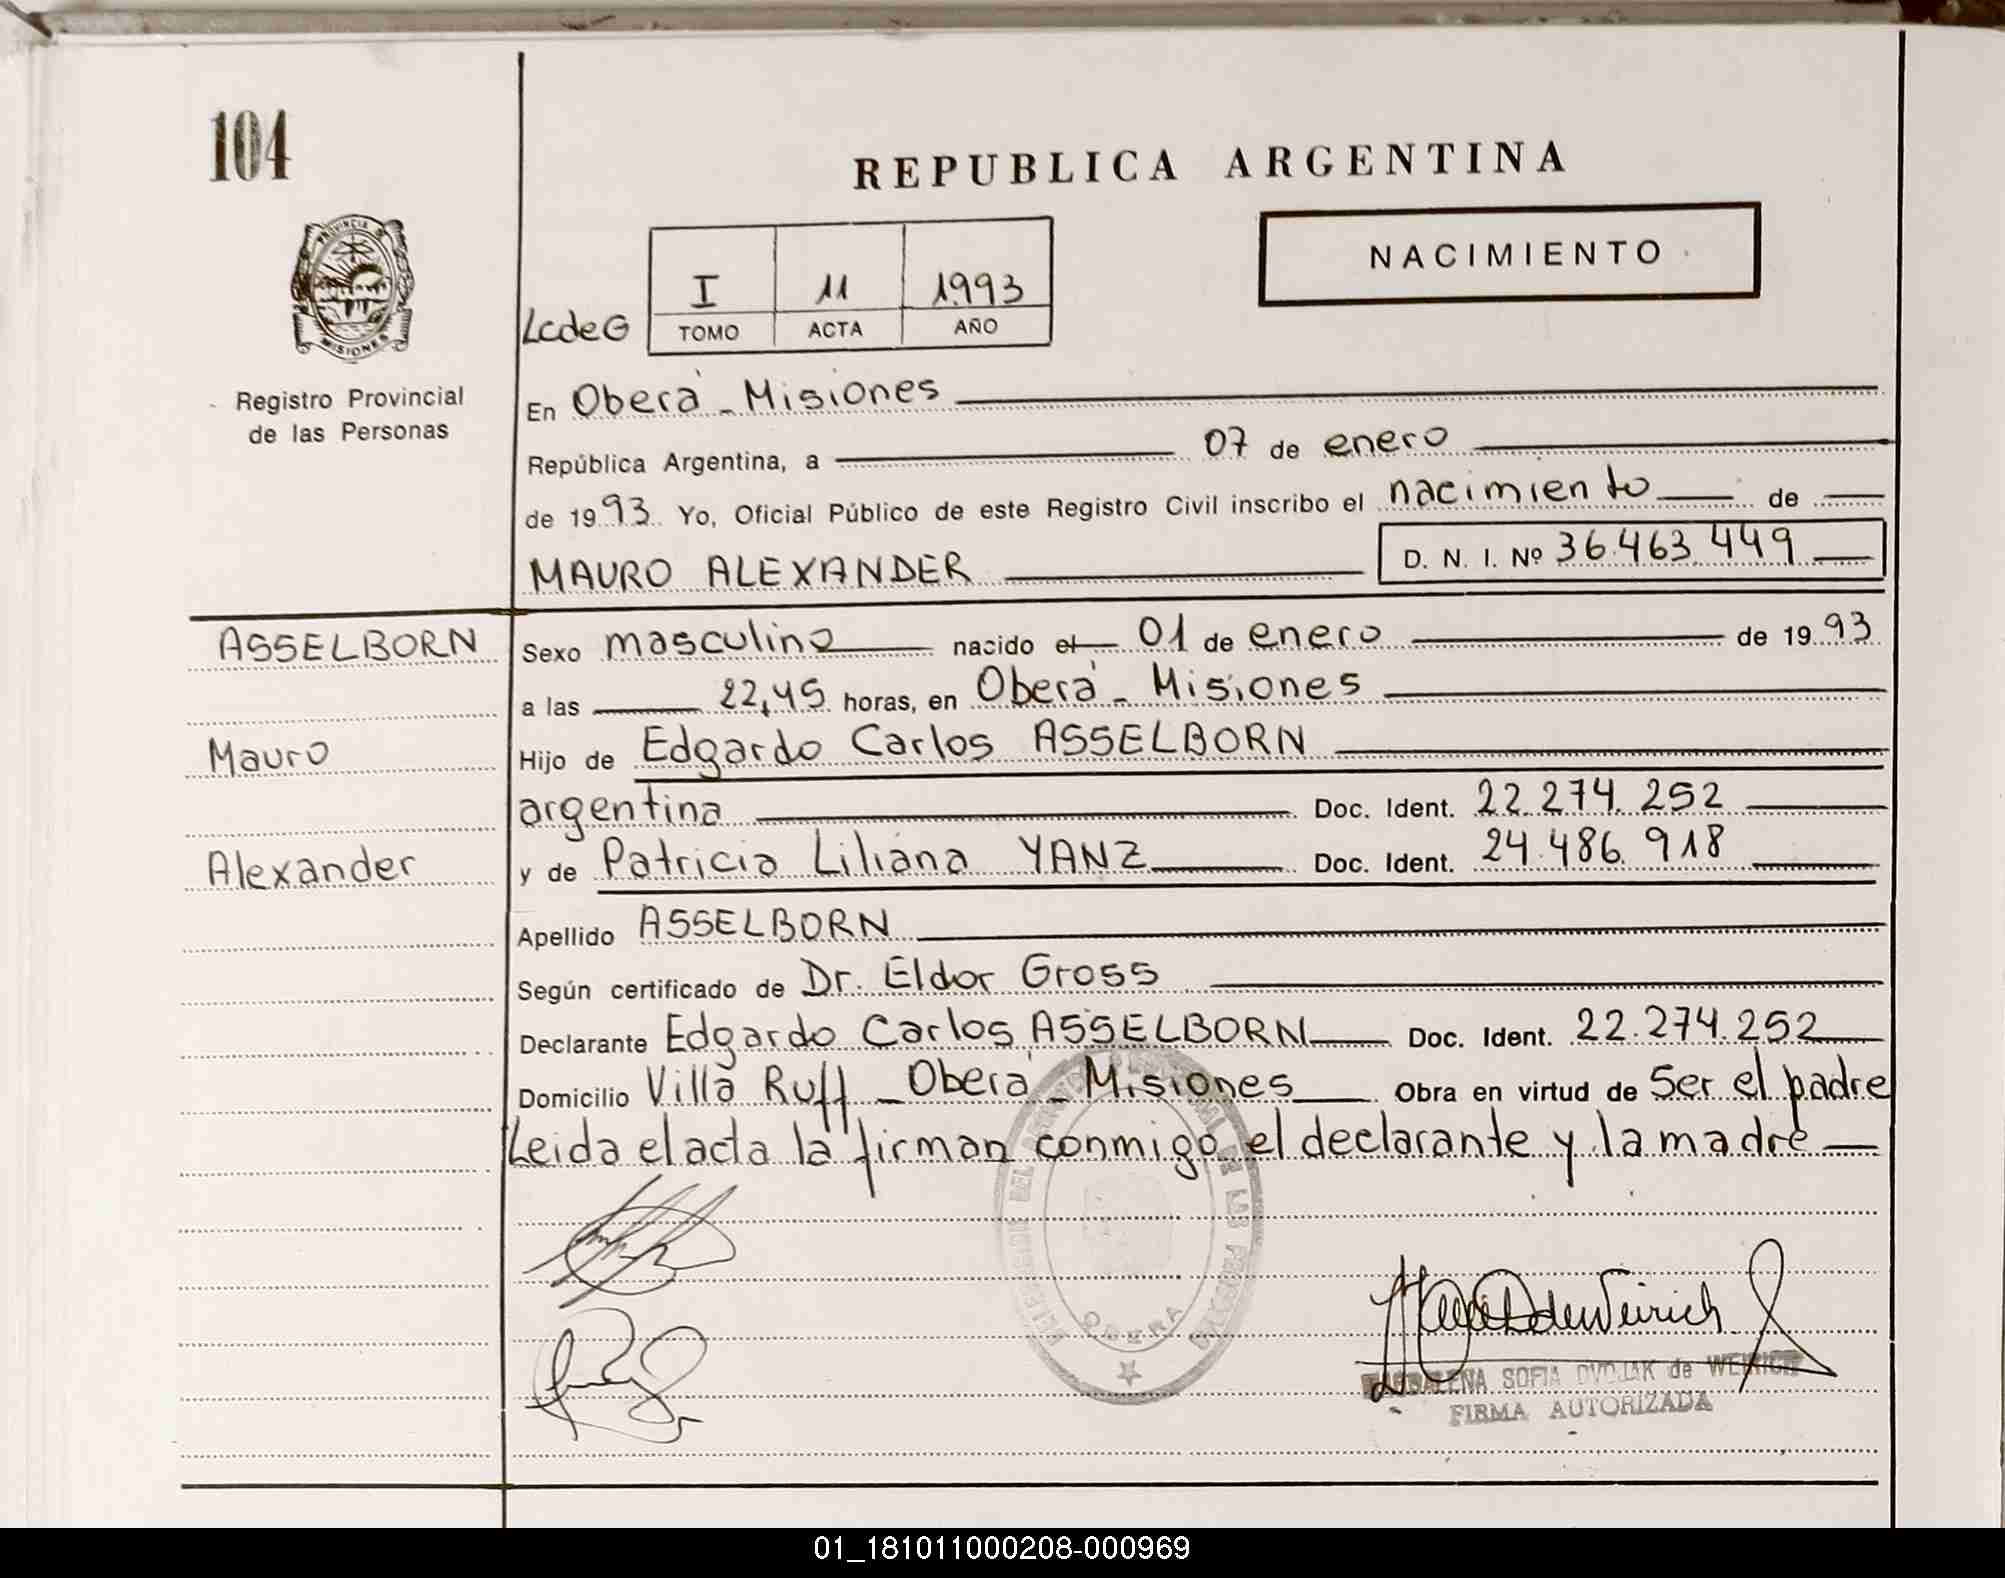 104
REPUBLICA ARGENTINA
PROVINCIA D
MISIONES
NACIMIENTO
I 11 1993
LcdeG TOMO ACTA AÑO
Registro Provincial
de las Personas
En Oberá - Misiones
República Argentina, a 07 de enero
de 1993. Yo, Oficial Público de este Registro Civil inscribo el nacimiento de
MAURO ALEXANDER D. N. I. Nº 36.463.449
ASSELBORN Sexo masculino nacido el 01 de enero de 1993
a las 22,45 horas, en Oberá - Misiones
Mauro Hijo de Edgardo Carlos ASSELBORN
argentina Doc. Ident. 22.274.252
Alexander y de Patricia Liliana YANZ Doc. Ident. 24.486.918
Apellido ASSELBORN
Según certificado de Dr. Eldor Gross
Declarante Edgardo Carlos ASSELBORN Doc. Ident. 22.274.252
Domicilio Villa Ruff - Oberá - Misiones Obra en virtud de Ser el padre
Leida el acta la firman conmigo el declarante y la madre
DE LAS PERSONAS
OBERA
de Weirich
MAGDALENA SOFIA DVOJAK de WEIRICH
FIRMA AUTORIZADA
01_181011000208-000969